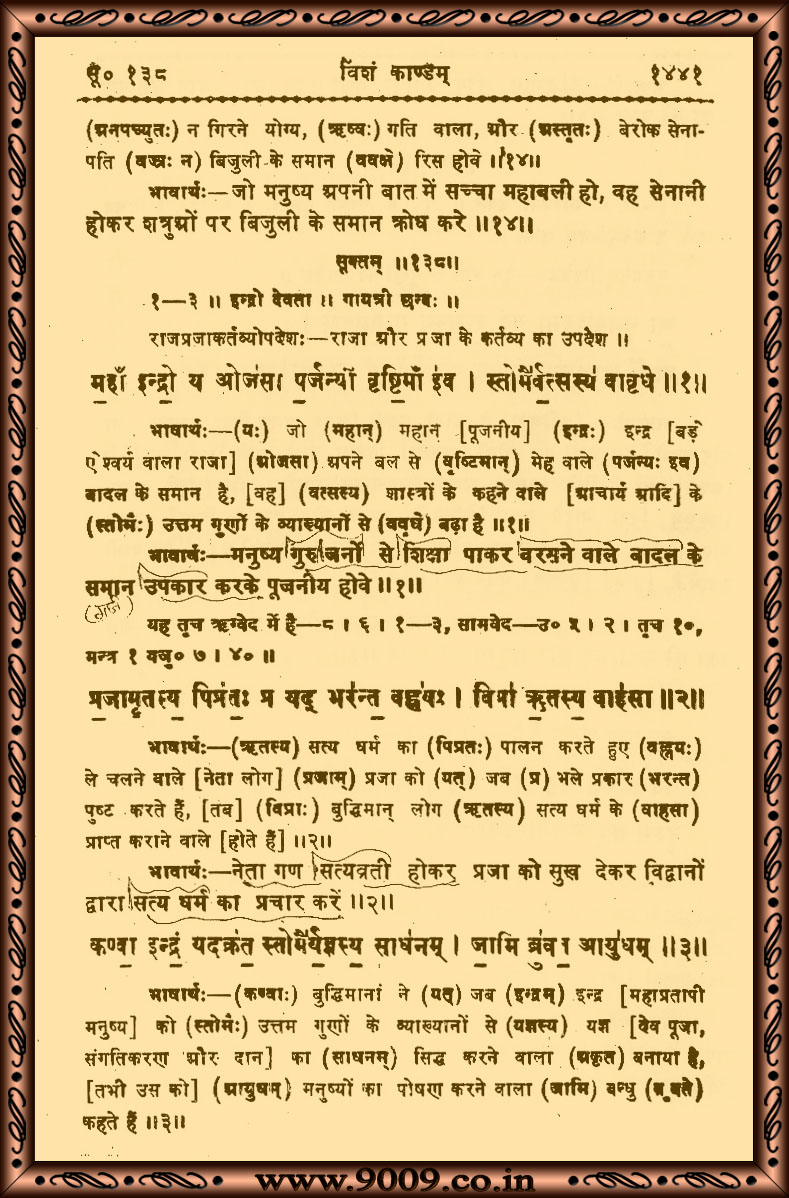 सू० १३८ विंशं काण्डम् १४४१
(अनपच्युतः) न गिरने योग्य, (ऋष्वः) गति वाला, और (अस्तृतः) बेरोक सेना-
पति (वज्रः न) बिजुली के समान (ववक्षे) रिस होवे ॥१४॥
भावार्थः—जो मनुष्य अपनी बात में सच्चा महाबली हो, वह सेनानी
होकर शत्रुओं पर बिजुली के समान क्रोध करे ॥१४॥
सूक्तम् ॥१३८॥
१—३ ॥ इन्द्रो देवता ॥ गायत्री छन्दः ॥
राजप्रजाकर्तव्योपदेशः—राजा और प्रजा के कर्तव्य का उपदेश ॥
म॒हाँ इन्द्रो॒ य ओज॑सा प॒र्जन्यो॑ वृष्टि॒माँ इ॑व । स्तोमै॑र्व॒त्सस्य॑ वावृधे ॥१॥
भाषार्थः—(यः) जो (महान्) महान् [पूजनीय] (इन्द्रः) इन्द्र [बड़े
ऐश्वर्य वाला राजा] (ओजसा) अपने बल से (वृष्टिमान्) मेह वाले (पर्जन्यः इव)
बादल के समान है, [वह] (वत्सस्य) शास्त्रों के कहने वाले [आचार्य आदि] के
(स्तोमैः) उत्तम गुणों के व्याख्यानों से (ववृधे) बढ़ा है ॥१॥
भावार्थः—मनुष्य गुरुजनों से शिक्षा पाकर बरसने वाले बादल के
समान उपकार करके पूजनीय होवे ॥१॥
यह तृच ऋग्वेद में है—८ । ६ । १—३, सामवेद—उ० ५ । २ । तृच १०,
मन्त्र १ यजु० ७ । ४० ॥
प्र॒जामृ॒तस्य॒ पिप्र॑तः॒ प्र यद् भर॑न्त॒ वह्न॑यः । विप्रा॑ ऋ॒तस्य॒ वाह॑सा ॥२॥
भाषार्थः—(ऋतस्य) सत्य धर्म का (पिप्रतः) पालन करते हुए (वह्नयः)
ले चलने वाले [नेता लोग] (प्रजाम्) प्रजा को (यत्) जब (प्र) भले प्रकार (भरन्त)
पुष्ट करते हैं, [तब] (विप्राः) बुद्धिमान् लोग (ऋतस्य) सत्य धर्म के (वाहसा)
प्राप्त कराने वाले [होते हैं] ॥२॥
भावार्थः—नेता गण सत्यव्रती होकर प्रजा को सुख देकर विद्वानों
द्वारा सत्य धर्म का प्रचार करें ॥२॥
कण्वा॒ इन्द्रं॒ यदक्र॑त॒ स्तोमै॑र्य॒ज्ञस्य॒ साध॑नम् । जा॒मि ब्रु॑वत॒ आयु॑धम् ॥३॥
भाषार्थः—(कण्वाः) बुद्धिमानों ने (यत्) जब (इन्द्रम्) इन्द्र [महाप्रतापी
मनुष्य] को (स्तोमैः) उत्तम गुणों के व्याख्यानों से (यज्ञस्य) यज्ञ [देव पूजा,
संगतिकरण और दान] का (साधनम्) सिद्ध करने वाला (अकृत) बनाया है,
[तभी उस को] (आयुधम्) मनुष्यों का पोषण करने वाला (जामि) बन्धु (ब्रुवते)
कहते हैं ॥३॥
www.9009.co.in